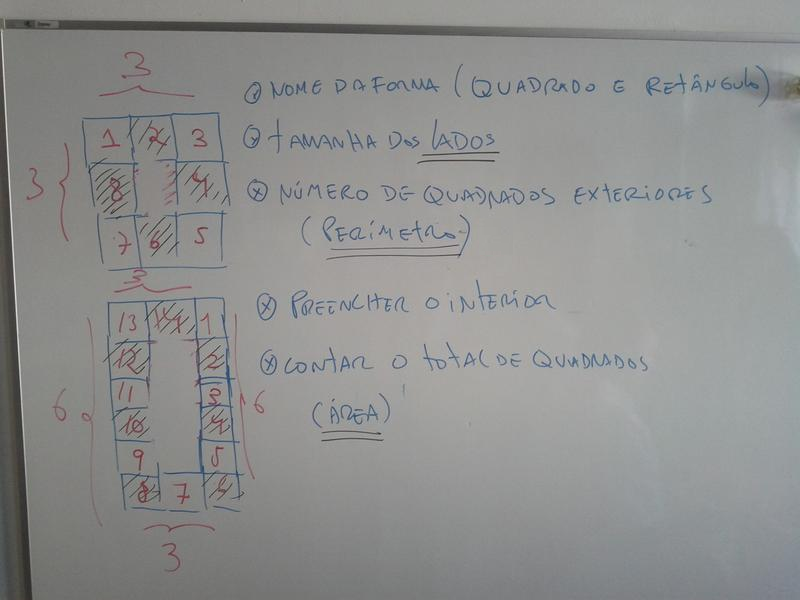 3
⊗ NOME DA FORMA (QUADRADO E RETÂNGULO)
1 2 3
⊗ TAMANHA DOS LADOS
3
8 4
⊗ NÚMERO DE QUADRADOS EXTERIORES
7 6 5
(PERÍMETRO)
3
⊗ PREENCHER O INTERIOR
13 14 1
12 2
⊗ CONTAR O TOTAL DE QUADRADOS
11 3
6 6
10 4
(ÁREA)
9 5
8 7 6
3